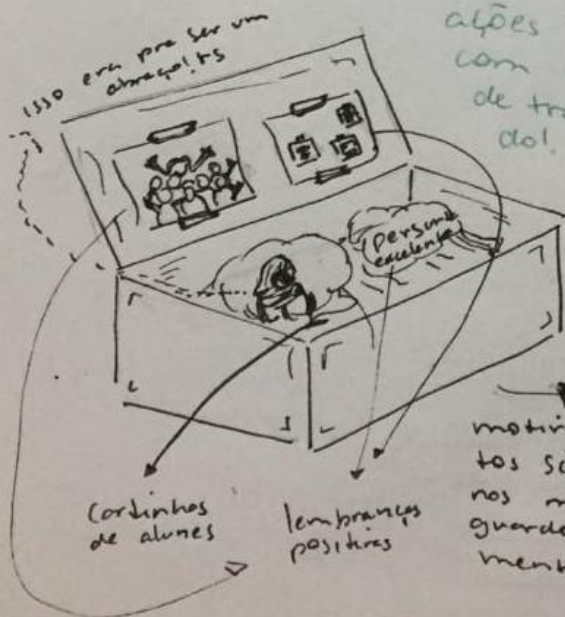 isso era pra ser um
abraço! rs
ações
com
de tra
do!
person
excelente
cartinhas
de alunes
lembranças
positivas
motiv
tos sã
nos m
guarda
ment